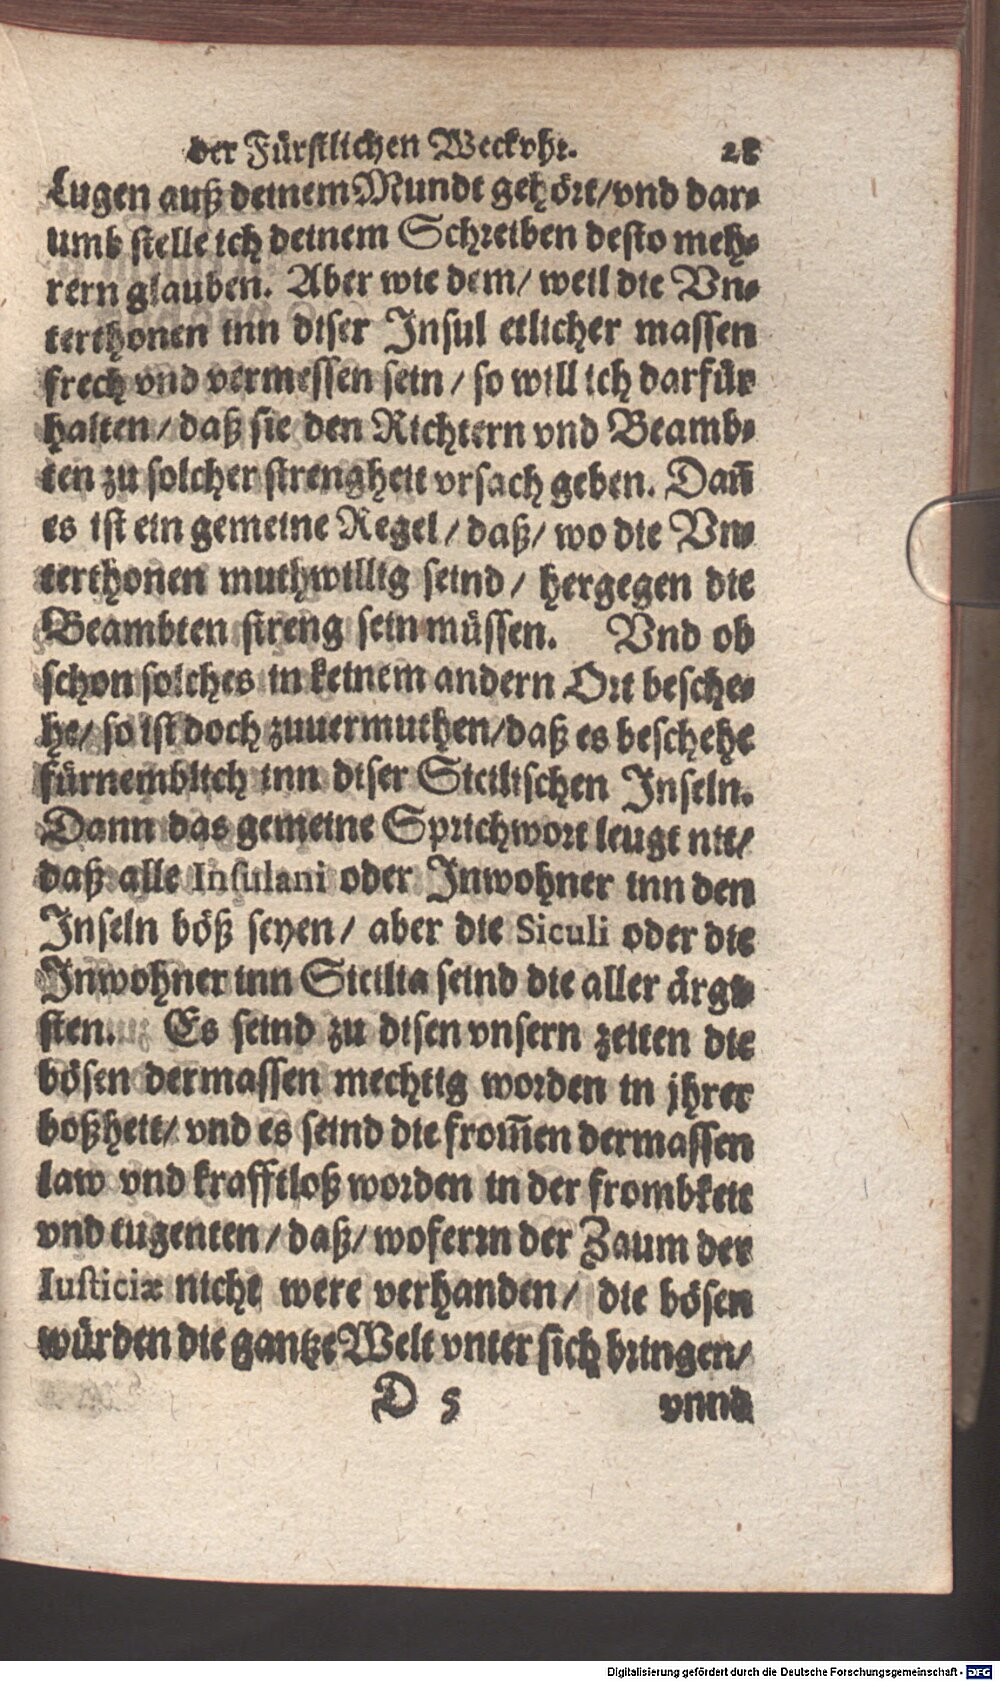 der Fürstlichen Weckvhr. 28
Lugen auß deinem Mundt gehört/ vnd dar⸗
umb stelle ich deinem Schreiben desto meh⸗
rern glauben. Aber wie dem/ weil die Vn⸗
terthonen inn diser Insul etlicher massen
frech vnd vermessen sein / so will ich darfür
halten/ daß sie den Richtern vnd Beamb⸗
ten zu solcher strengheit vrsach geben. Dañ
es ist ein gemeine Regel/ daß/ wo die Vn⸗
terthonen muthwillig seind / hergegen die
Beambten streng sein müssen. Vnd ob
schon solches in keinem andern Ort besche⸗
he/ so ist doch zuuermuthen/ daß es beschehe
fürnemblich inn diser Sicilischen Inseln.
Dann das gemeine Sprichwort leugt nit/
daß alle Insulani oder Inwohner inn den
Inseln böß seyen/ aber die Siculi oder die
Inwohner inn Sicilia seind die aller ärg⸗
sten. Es seind zu disen vnsern zeiten die
bösen dermassen mechtig worden in jhrer
boßheit/ vnd es seind die from̃en dermassen
law vnd krafftloß worden in der frombkeit
vnd tugenten/ daß/ woferrn der Zaum der
Iusticiæ nicht were verhanden/ die bösen
würden die gantze Welt vnter sich bringen/
D 5 vnnd
Digitalisierung gefördert durch die Deutsche Forschungsgemeinschaft - DFG